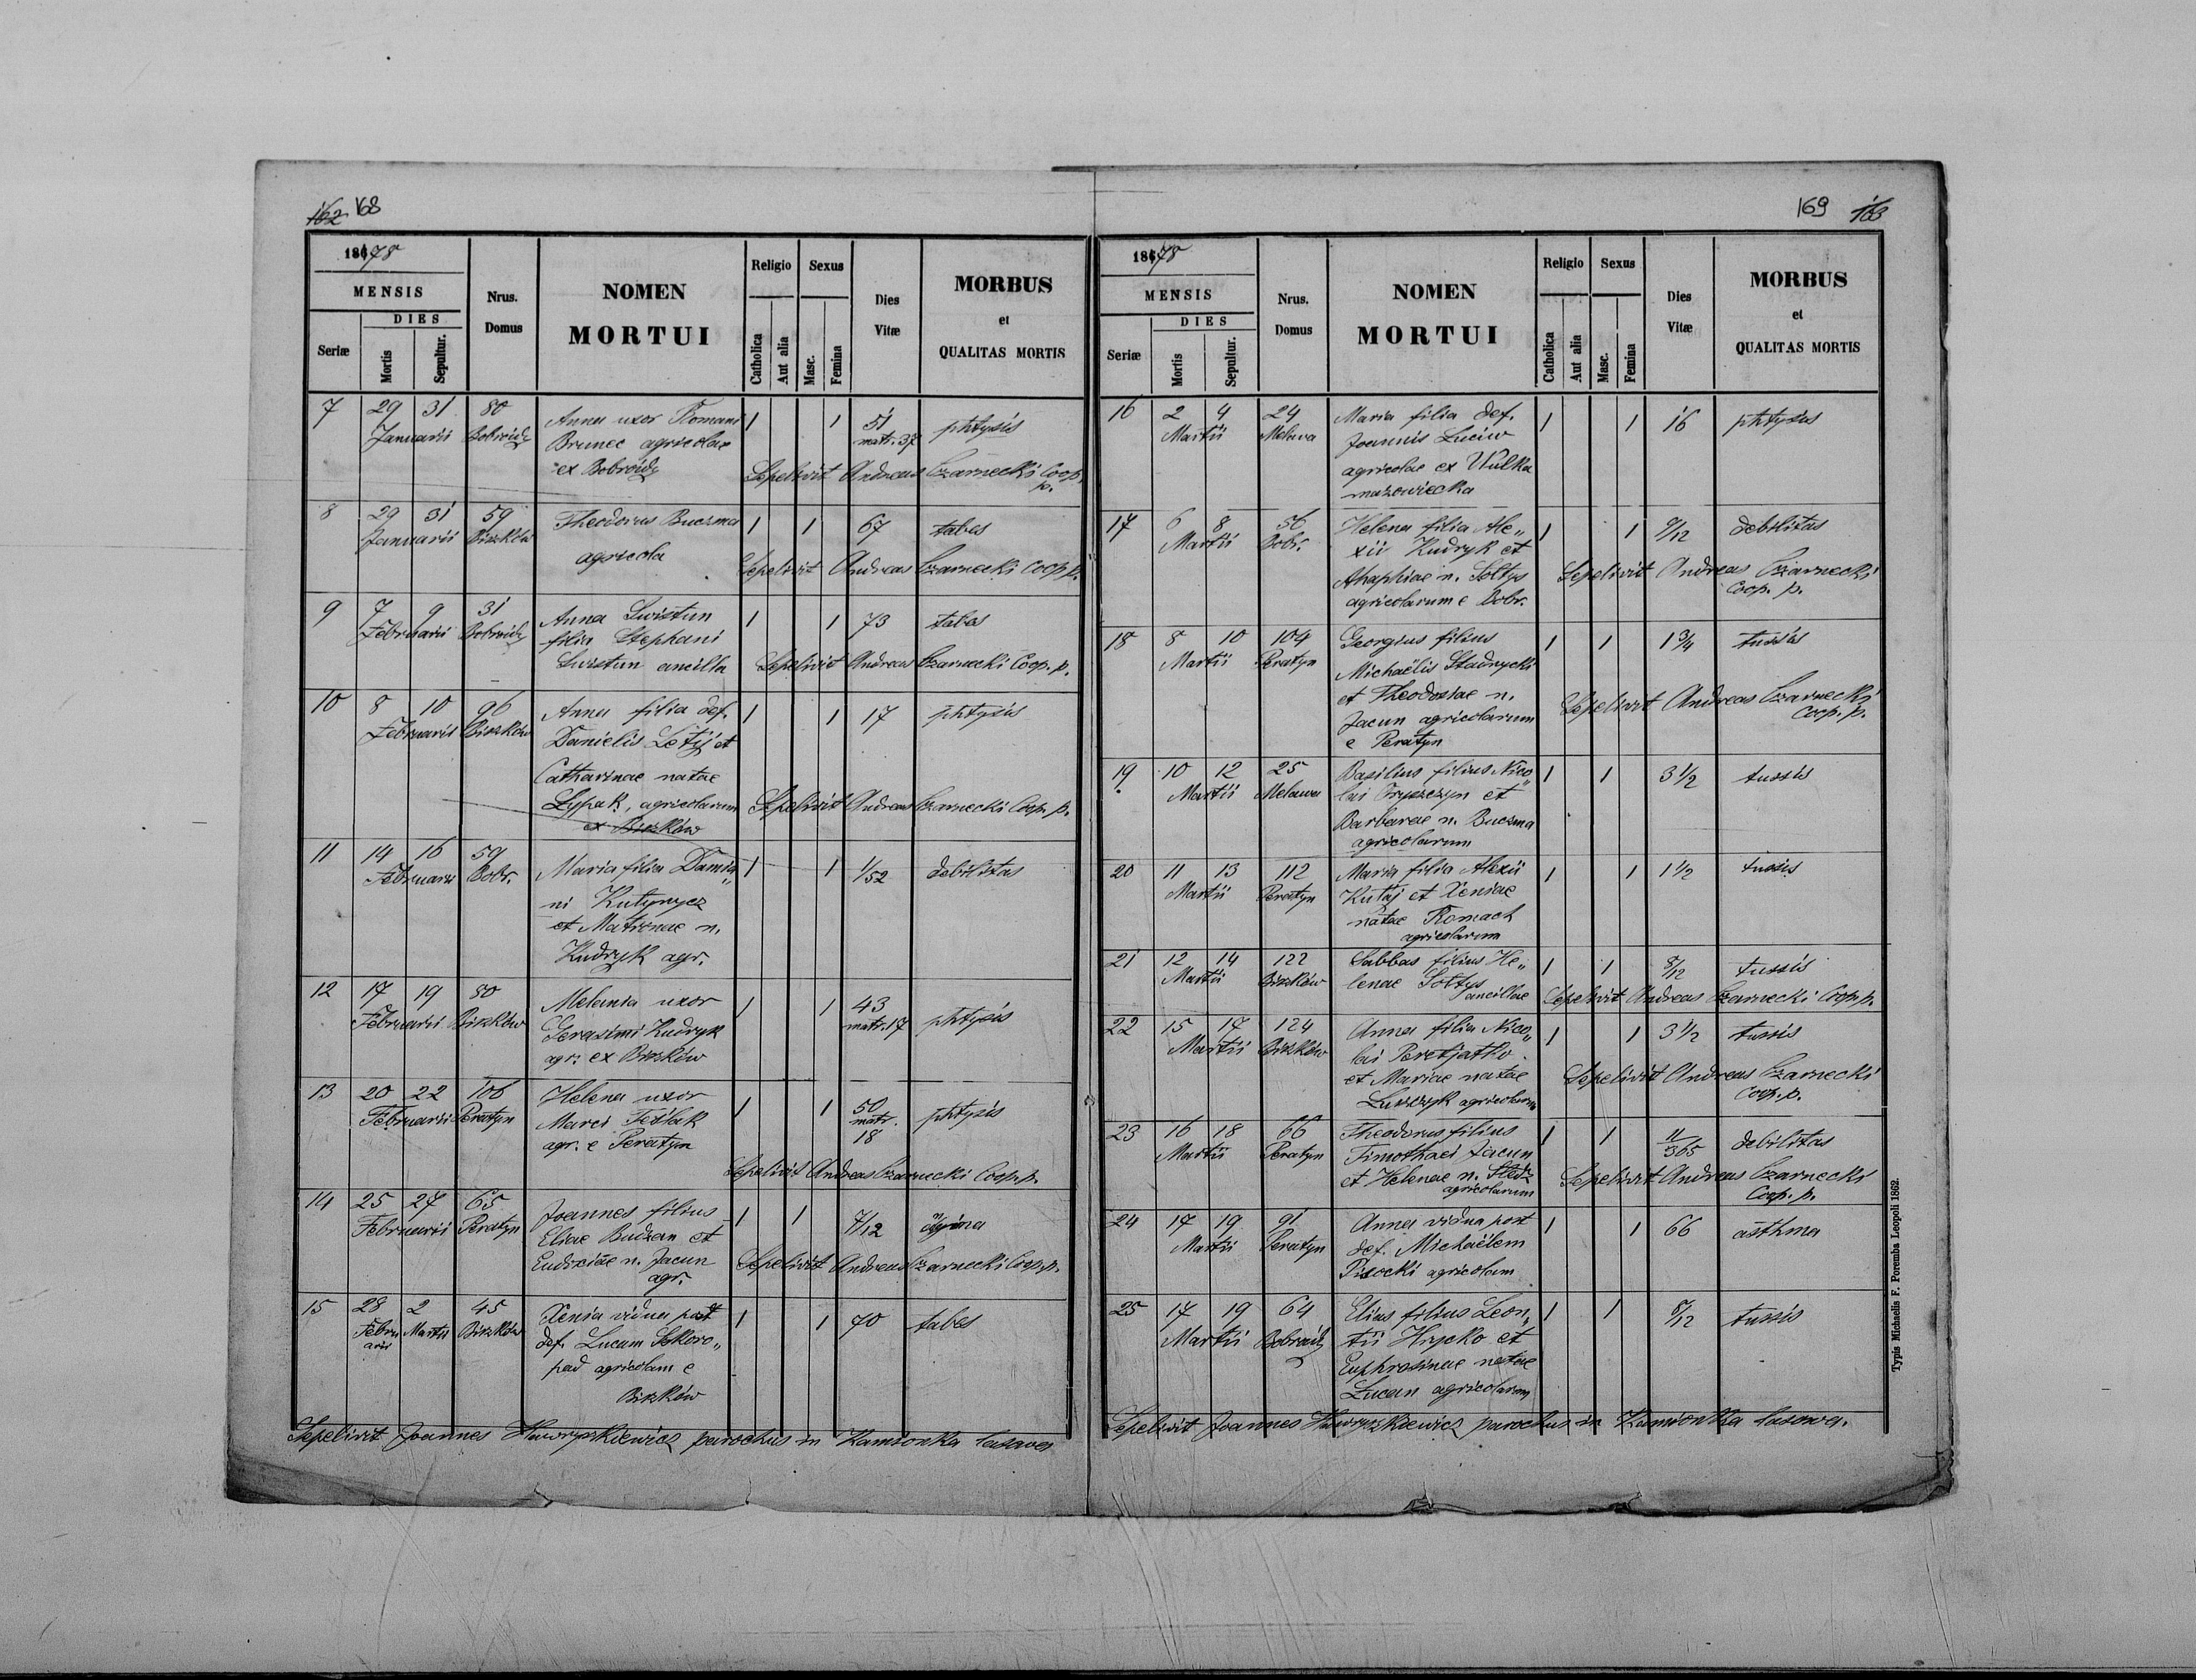 162 168
1878
MENSIS
DIES
Seriæ
Mortis
Sepultur.
Nrus.
Domus
NOMEN
MORTUI
Religio
Catholica
Aut alia
Sexus
Masc.
Femina
Dies
Vitæ
MORBUS
et
QUALITAS MORTIS
7 29 31 80 Anna uxor Romani 1 1 51 phtysis
Januarii Bobroidy Brunec agricolae matr. 37
ex Bobroidy Sepelivit Andreas Czarnecki Coop.
p.
8 29 31 59 Theodorus Buczma 1 1 67 tabes
Januarii Biszków agricola
Sepelivit Andreas Czarnecki Coop p.
9 7 9 31 Anna Swistun 1 1 73 tabes
Februarii Bobroidy filia Stephani
Swistun ancilla Sepelivit Andreas Czarnecki Coop. p.
10 8 10 96 Anna filia def. 1 1 17 phtysis
Februarii Biszków Danielis Letij et
Catharinae natae
Lypak, agricolarum Sepelivit Andreas Czarnecki Coop. p.
ex Biszków
11 14 16 59 Maria filia Damia„ 1 1 1/52 debilitas
Februarii Bobr. ni Kutynycz
et Matronae n.
Kudryk agr.
12 17 19 80 Melania uxor 1 1 43 phtysis
Februarii Biszków Gerasimi Kudryk matr. 17
agr. ex Biszków
13 20 22 106 Helena uxor 1 1 50 phtysis
Februarii Peratyn Marci Feślak matr.
agr. e Peratyn 18
Sepelivit Andreas Czarnecki Coop. p.
14 25 27 65 Joannes filius 1 1 7/12 angina
Februarii Peratyn Eliae Budzan et
Eudoxiae n. Jacun Sepelivit Andreas Czarnecki Coop. p.
agr.
15 28 2 45 Xenia vidua post 1 1 70 tabes
Febru Martii Biszków def. Lucam Skoro„
arii pad agricolam e
Biszków
Sepelivit Joannes Hawryszkiewicz parochus in Kamionka lasowa
169 163
1878
MENSIS
DIES
Seriæ
Mortis
Sepultur.
Nrus.
Domus
NOMEN
MORTUI
Religio
Catholica
Aut alia
Sexus
Masc.
Femina
Dies
Vitæ
MORBUS
et
QUALITAS MORTIS
16 2 4 24 Maria filia def. 1 1 16 phtysis
Martii Melawa Joannis Luciw
agricolae ex Wulka
mazowiecka
17 6 8 56 Helena filia Ale„ 1 1 9/12 debilitas
Martii Bobr. xii Kudryk et
Ahaphiae n. Sołtys Sepelivit Andreas Czarnecki
agricolarum e Bobr. Coop. p.
18 8 10 104 Georgius filius 1 1 1 3/4 tussis
Martii Peratyn Michaëlis Stadnycki
et Theodosiae n. Sepelivit Andreas Czarnecki
Jacun agricolarum Coop. p.
e Peratyn
19 10 12 25 Basilius filius Nico„ 1 1 3 1/2 tussis
Martii Melawa lai Oryszczyn et
Barbarae n. Buczma
agricolarum
20 11 13 112 Maria filia Alexii 1 1 1 1/2 tussis
Martii Peratyn Kutaj et Xeniae
natae Romach
agricolarum
21 12 14 122 Sabbas filius He„ 1 1 8/12 tussis
Martii Biszków lenae Sołtys
ancillae Sepelivit Andreas Czarnecki Coop p.
22 15 17 124 Anna filia Nico„ 1 1 3 1/2 tussis
Martii Biszków lai Peretjatko
et Mariae natae Sepelivit Andreas Czarnecki
Luszzyk agricolarum Coop. p.
23 16 18 66 Theodorus filius 1 1 11/365 debilitas
Martii Peratyn Timothaei Jacun
et Helenae n. Sepelivit Andreas Czarnecki
agricolarum Coop. p.
24 17 19 91 Anna vidua post 1 1 66 asthma
Martii Peratyn def. Michaëlem
Pisocki agricolam
25 17 19 64 Elias filius Leon„ 1 1 8/12 tussis
Martii Bobroidy tii Hrycko et
Euphrosinae natae
Lucan agricolarum
Sepelivit Joannes Hawryszkiewicz parochus in Kamionka lasowa.
Typis Michaelis F. Poremba Leopoli 1862.